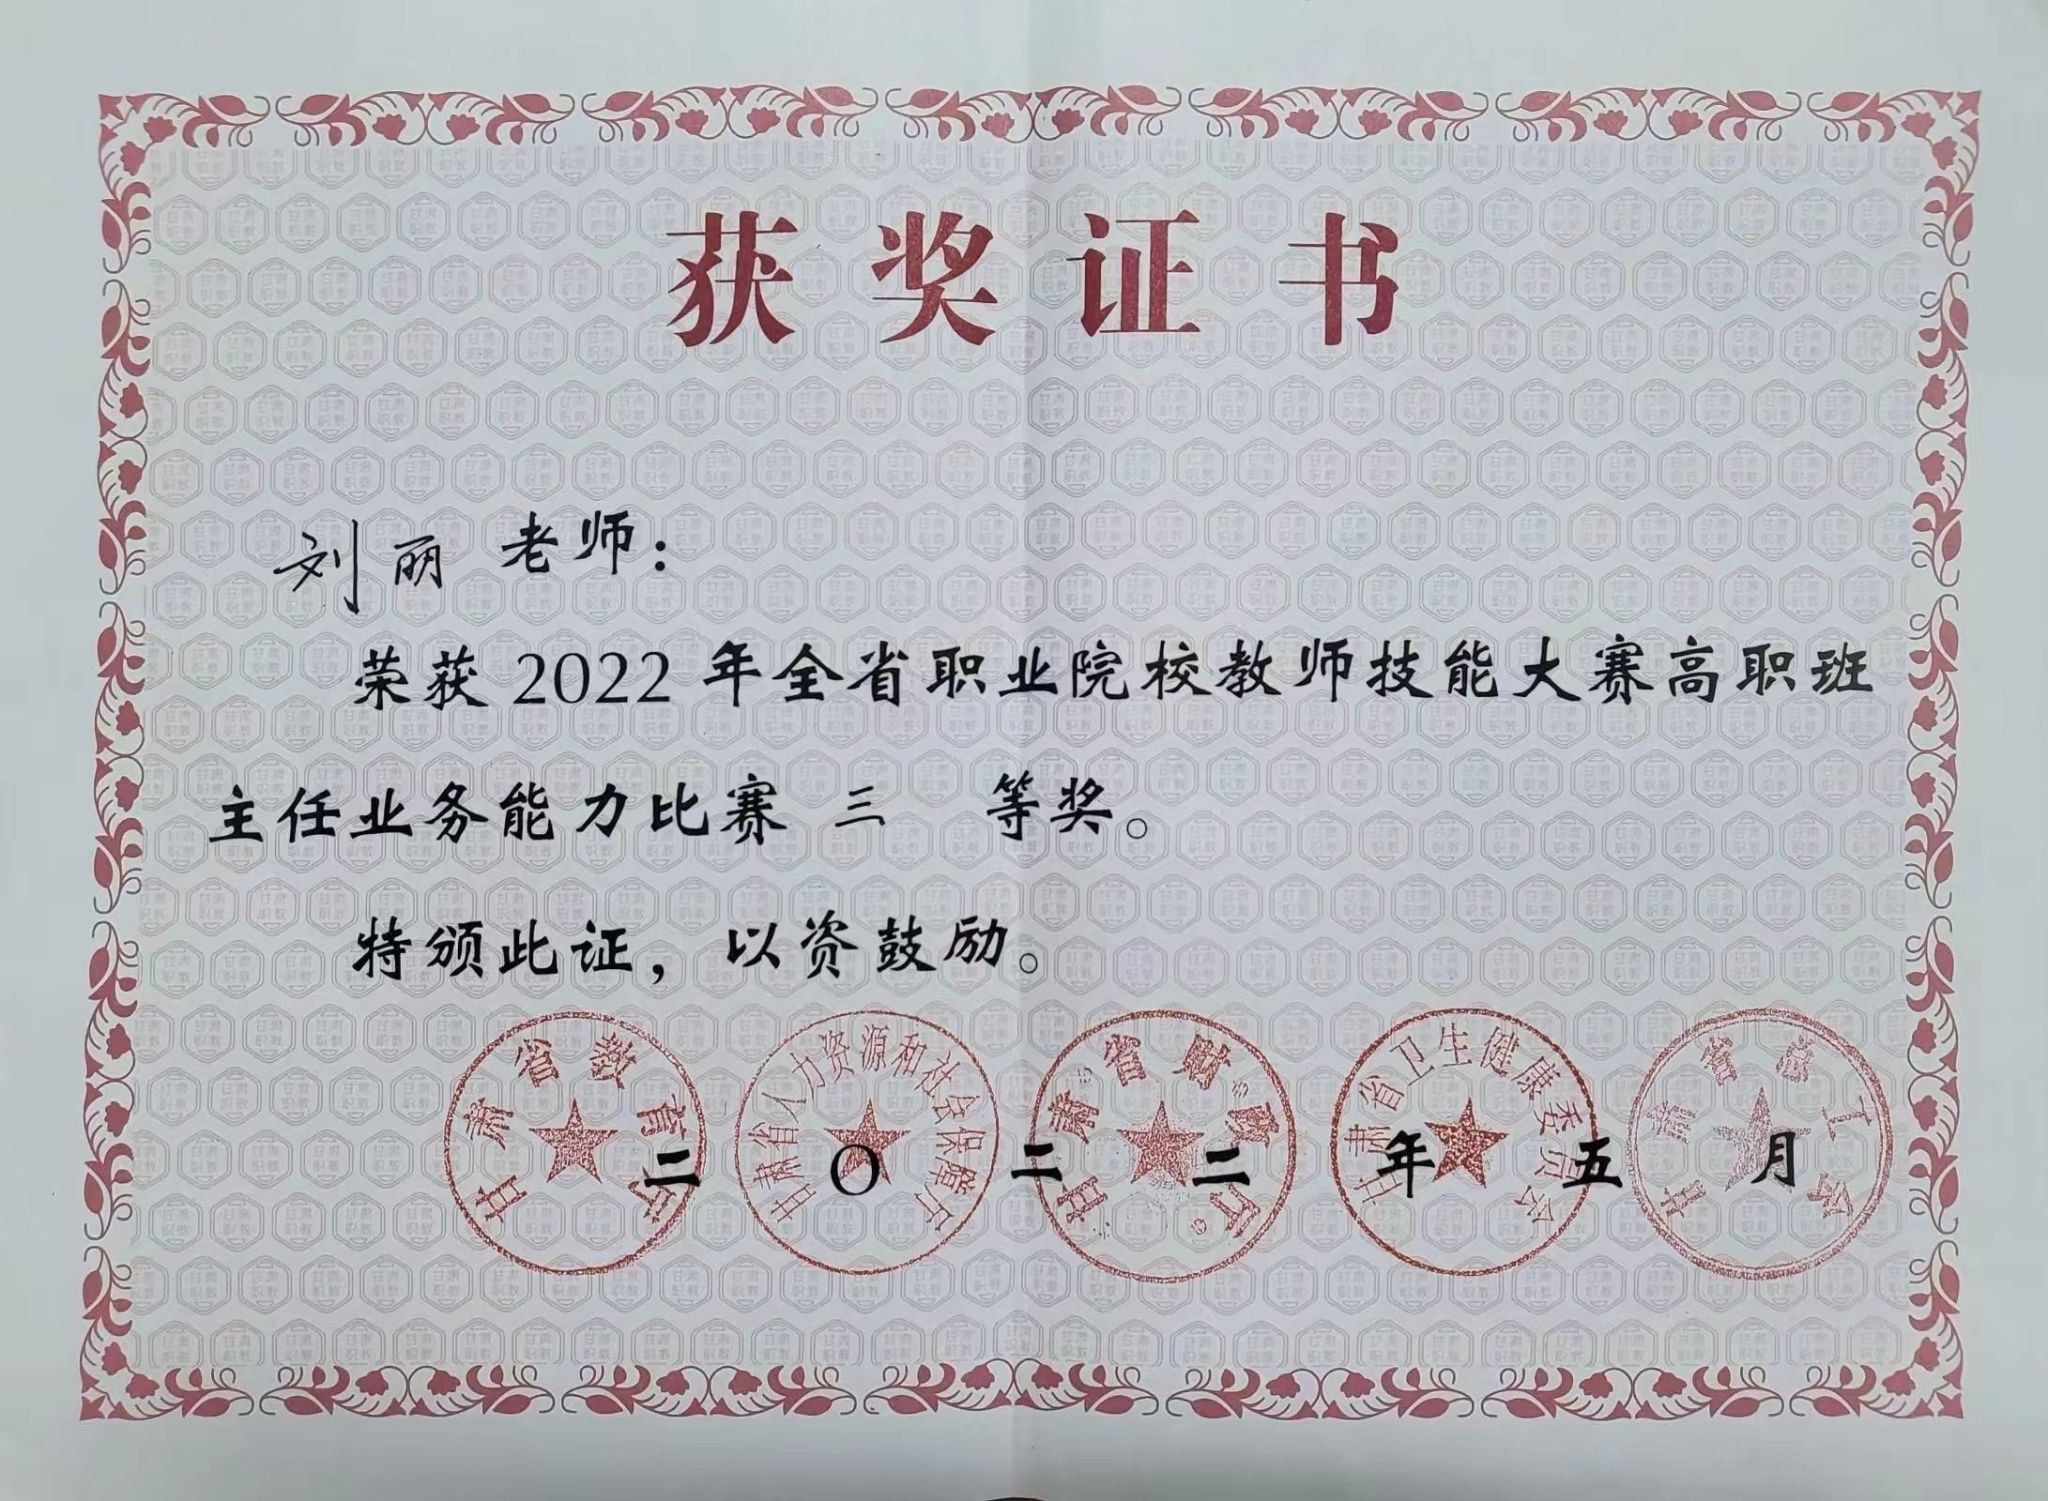 获奖证书
刘丽 老师：
荣获 2022 年全省职业院校教师技能大赛高职班
主任业务能力比赛 三 等奖。
特颁此证，以资鼓励。
甘肃省教育厅
甘肃省人力资源和社会保障厅
甘肃省财政厅
甘肃省卫生健康委员会
甘肃省总工会
二〇二二年五月
甘肃职教